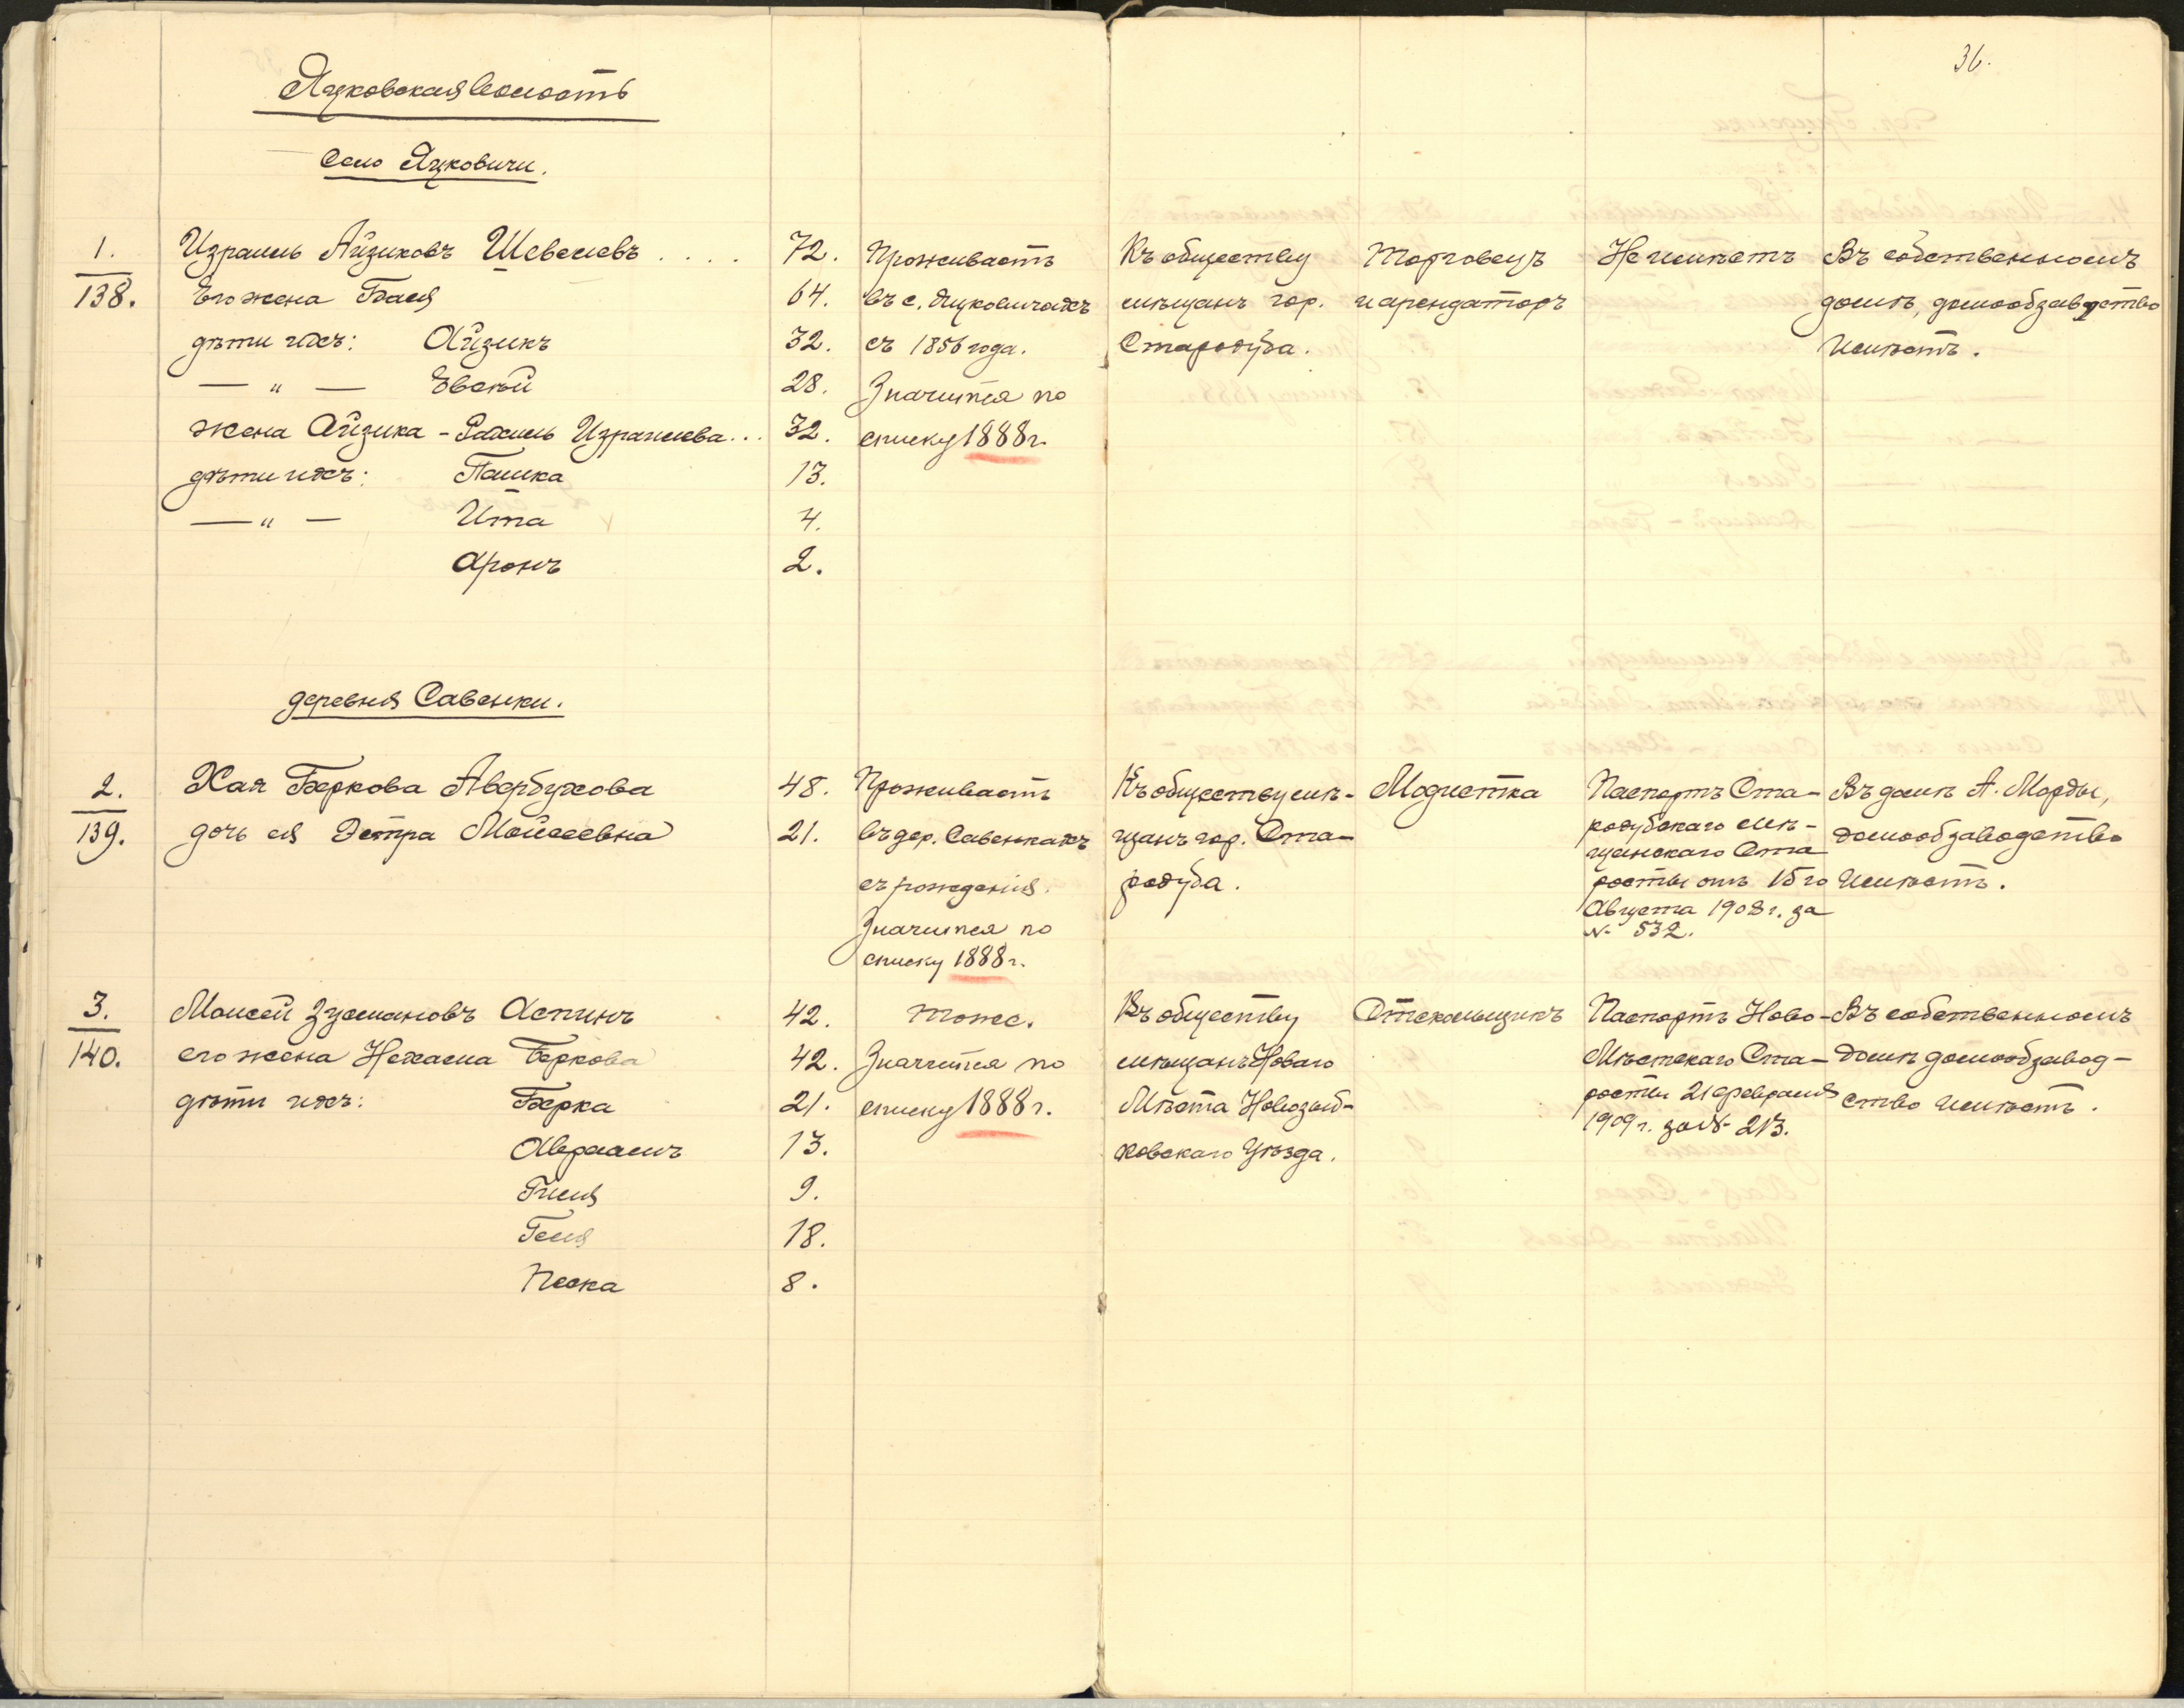 36.
Яцковская волость
Село Яцковичи.
1.
138.
Израиль Айзиковъ Шевелевъ . . . .
72.
Проживаетъ
Къ обществу
Торговецъ
Не имѣетъ
Въ собственномъ
Его жена Бася
64.
въ с. Яцковичахъ
мѣщанъ гор.
и арендаторъ
домѣ, домообзаводство
дѣти ихъ: Айзикъ
32.
съ 1856 года.
Стародуба.
имѣетъ.
— " — Евсѣй
28.
Значится по
жена Айзика - Рахиль Израилева...
32.
списку 1888 г.
дѣти ихъ: Пашка
13.
— " — Ита
4.
Аронъ
2.
деревня Савенки.
2.
139.
Хая Беркова Авербухова
48.
Проживаетъ
Къ обществу мѣ-
Модистка
Паспортъ Ста-
Въ домѣ А. Морды,
дочь ея Эстра Мойсеевна
21.
въ дер. Савенкахъ
щанъ гор. Ста-
родубскаго мѣ-
домообзаводство
щанскаго Ста
съ рожденія.
родуба.
росты отъ 15го
имѣетъ.
Значится по
Августа 1908 г. за
№ 532.
списку 1888 г.
3.
140.
Моисей Зусмановъ Аспинъ
42.
тоже.
Къ обществу
Стекольщикъ
Паспортъ Ново-
Въ собственномъ
его жена Нехама Беркова
42.
Значится по
мѣщанъ Новаго
Мѣстскаго Ста-
домѣ домообзавод-
дѣти ихъ: Берка
21.
списку 1888 г.
Мѣста Новозыб-
росты 21 февраля
ство имѣетъ.
1909 г. за № 213.
Авраамъ
13.
ковскаго Уѣзда.
Гися
9.
Геся
18.
Песка
8.